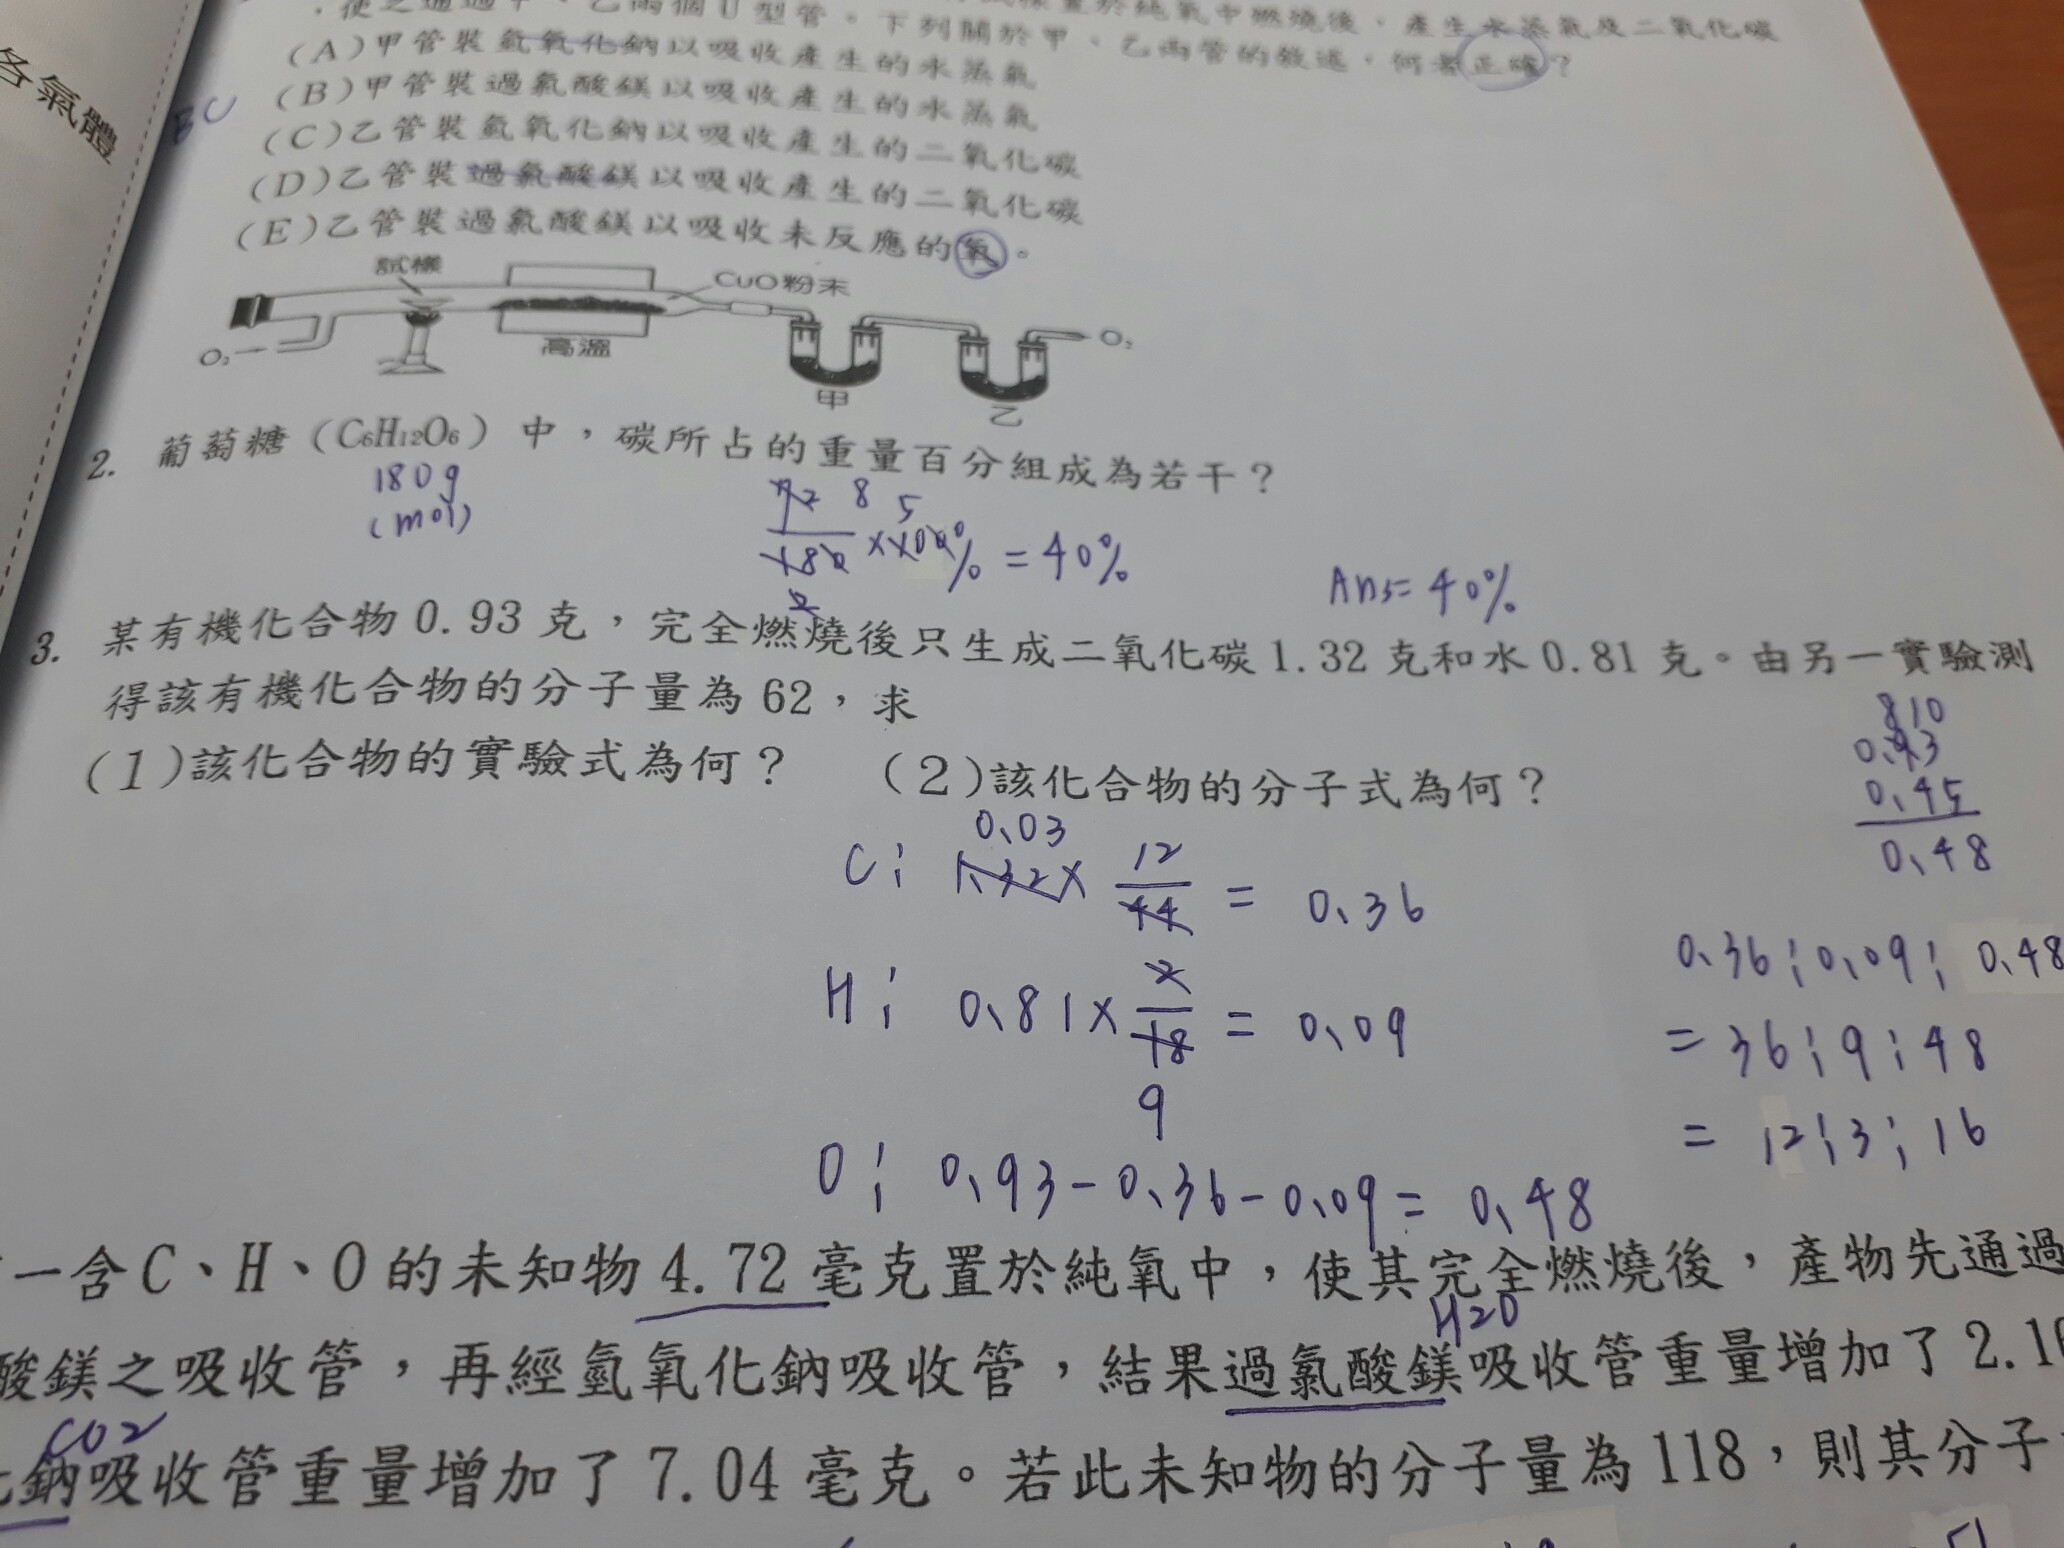 ，使之通過甲、乙兩個U型管。下列關於甲、乙兩管的敘述，何者正確？
置於純氧中燃燒後，產生水蒸氣及二氧化碳
各氣體
(A)甲管裝氫氧化鈉以吸收產生的水蒸氣
(B)甲管裝過氯酸鎂以吸收產生的水蒸氣
BC
(C)乙管裝氫氧化鈉以吸收產生的二氧化碳
(D)乙管裝過氯酸鎂以吸收產生的二氧化碳
(E)乙管裝過氯酸鎂以吸收未反應的氧。
試樣
CuO粉末
O₂
高溫
甲
乙
O₂
2. 葡萄糖（C₆H₁₂O₆）中，碳所占的重量百分組成為若干？
180g
(mol)
72 8 5
180 ×100% = 40%
2
Ans= 40%
3. 某有機化合物0.93克，完全燃燒後只生成二氧化碳1.32克和水0.81克。由另一實驗測
得該有機化合物的分子量為62，求
(1)該化合物的實驗式為何？ (2)該化合物的分子式為何？
810
0.93
0.45
0.48
0.03
C: 1.32× 12/44 = 0.36
H: 0.81× 2/18 = 0.09
9
O: 0.93-0.36-0.09= 0.48
0.36:0.09:0.48
= 36:9:48
= 12:3:16
一含C、H、O的未知物4.72毫克置於純氧中，使其完全燃燒後，產物先通過
H2O
酸鎂之吸收管，再經氫氧化鈉吸收管，結果過氯酸鎂吸收管重量增加了2.1
CO2
鈉吸收管重量增加了7.04毫克。若此未知物的分子量為118，則其分子